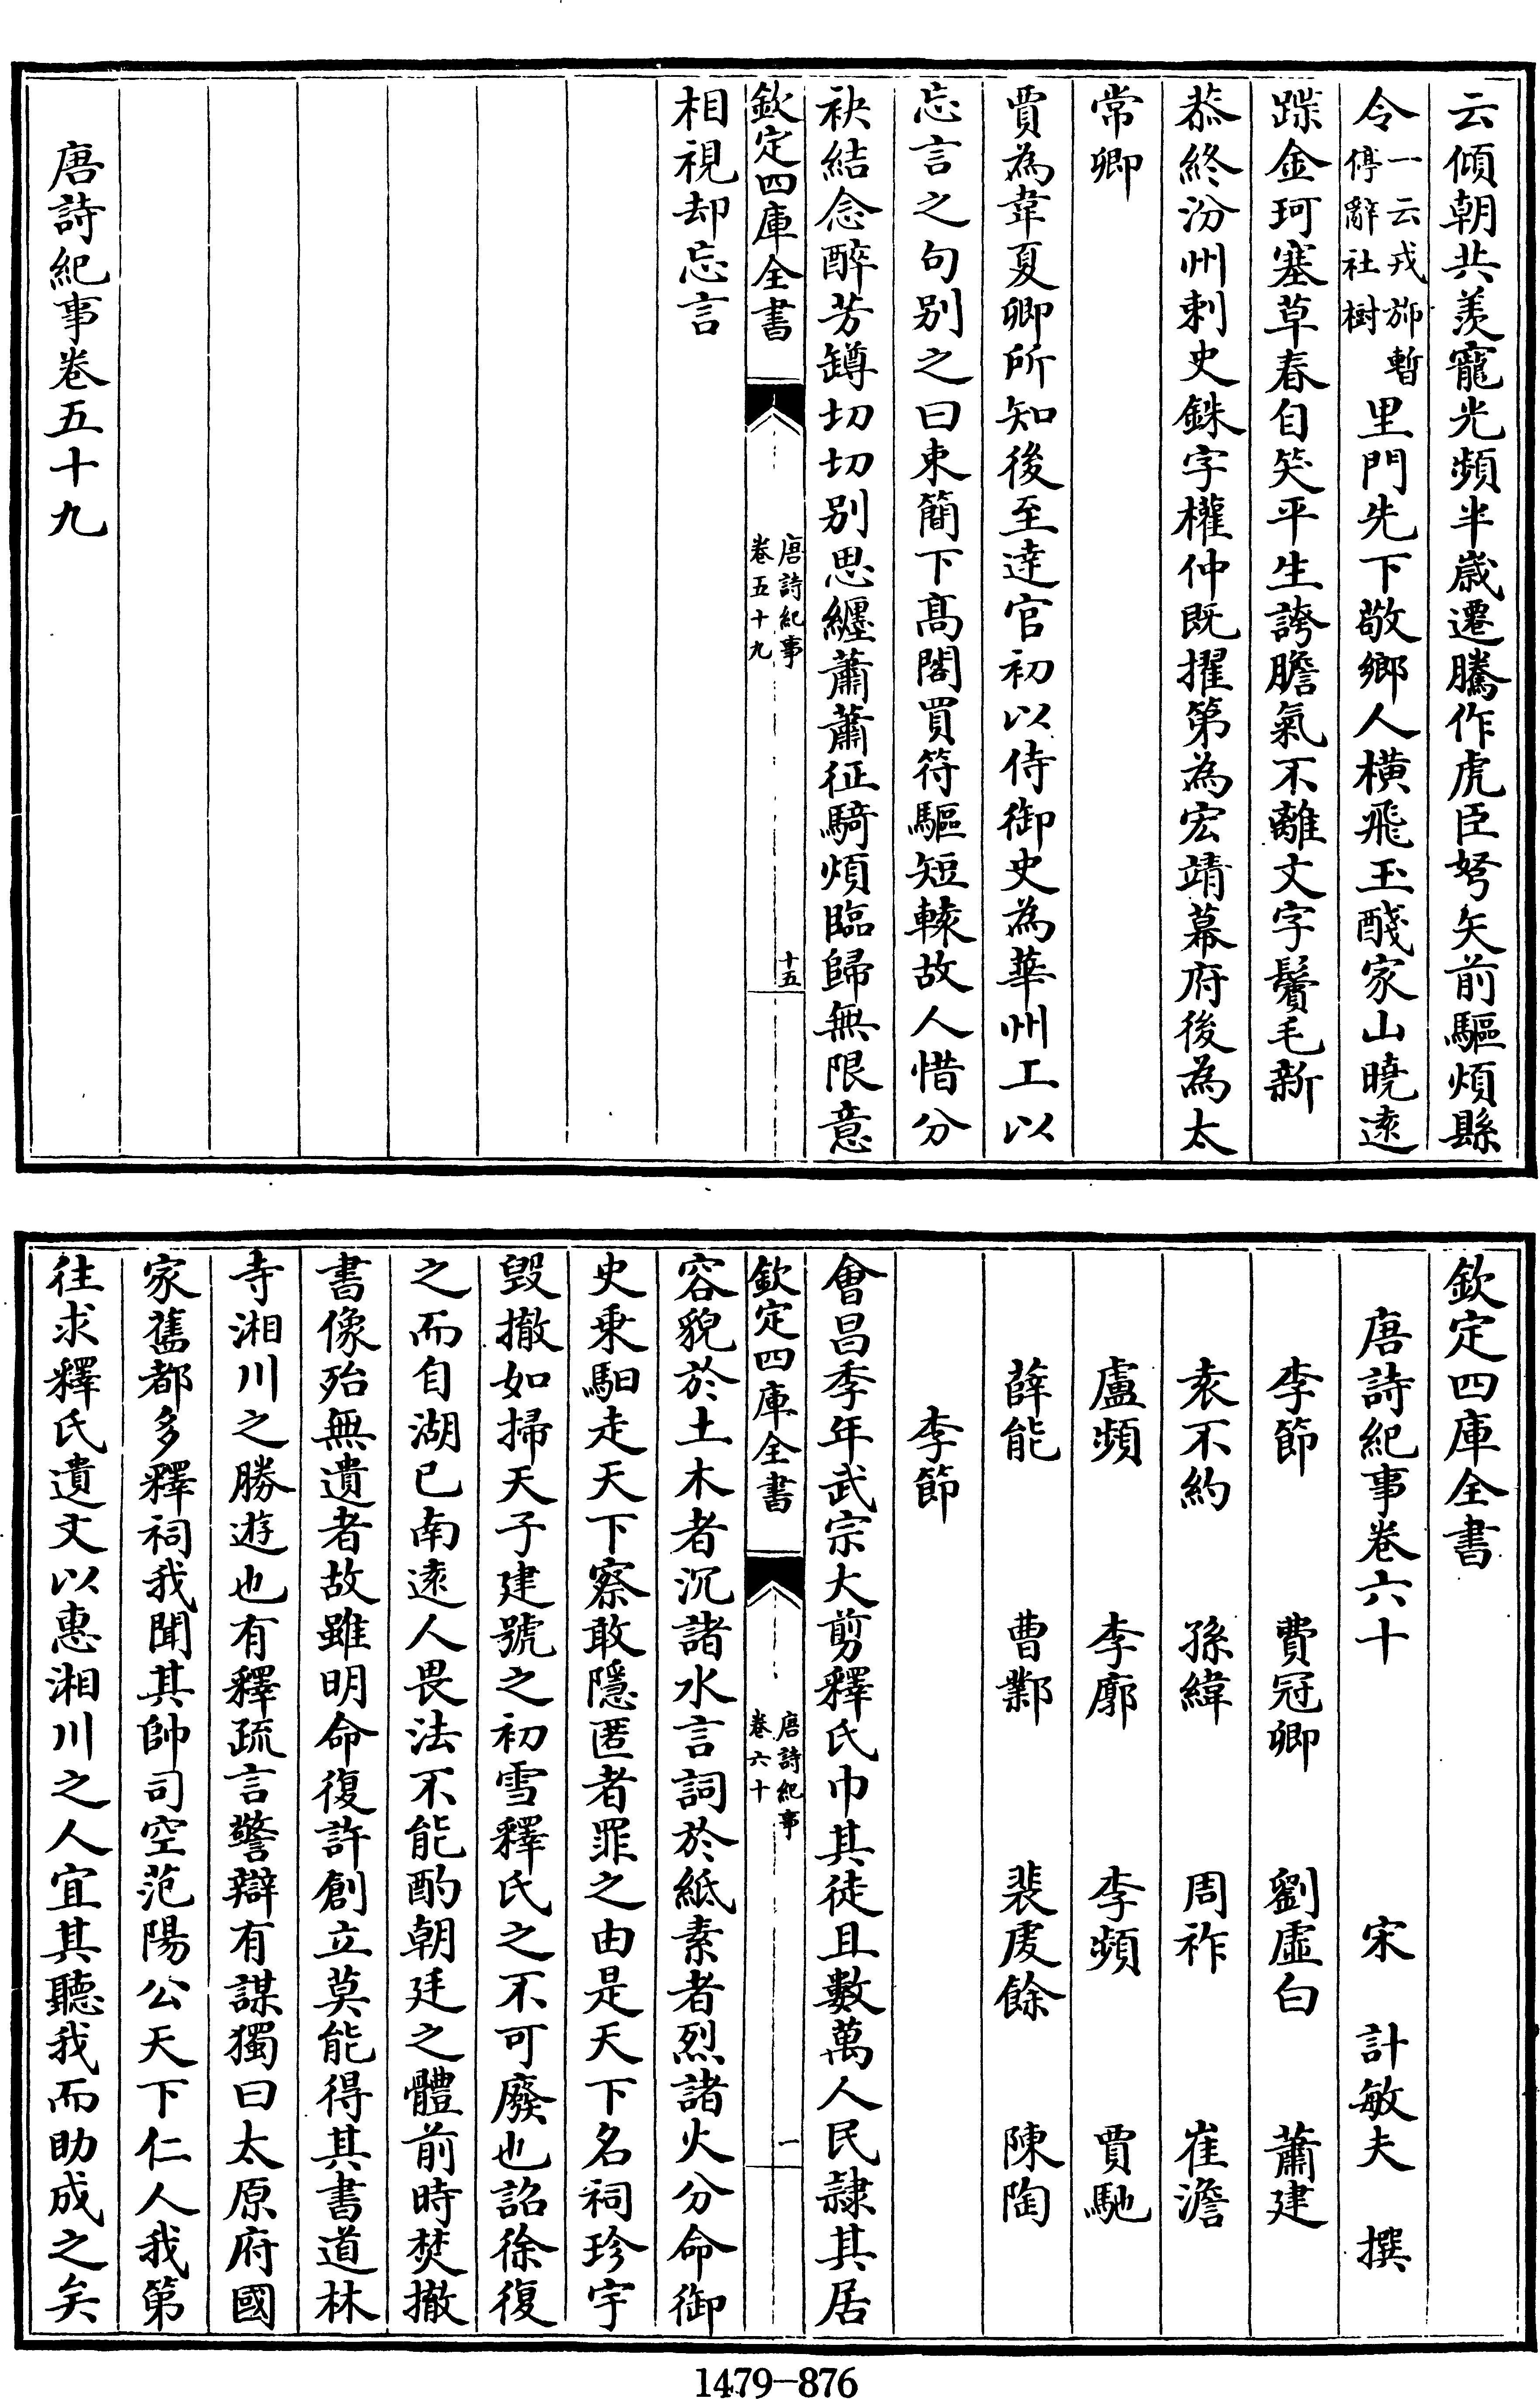 云傾朝共羡寵光頻半歲遷騰作虎臣弩矢前驅煩縣
令一云戎斾暫停辭社樹里門先下敬鄉人橫飛玉醆家山曉遠
蹀金珂塞草春自笑平生誇膽氣不離文字鬢毛新
恭終汾州刺史銖字權仲既擢第為宏靖幕府後為太
常卿
賈為韋夏卿所知後至達官初以侍御史為華州工以
忘言之句别之曰束簡下髙閣買符驅短轅故人惜分
袂結念醉芳罇切切别思纏蕭蕭征騎煩臨歸無限意
欽定四庫全書
唐詩紀事
卷五十九
十五
相視却忘言
唐詩紀事卷五十九
欽定四庫全書
唐詩紀事卷六十
宋 計敏夫 撰
李節 費冠卿 劉虛白 蕭建
袁不約 孫緯 周祚 崔澹
盧頻 李廓 李頻 賈馳
薛能 曹鄴 裴虔餘 陳陶
李節
會昌季年武宗大剪釋氏巾其徒且數萬人民隷其居
欽定四庫全書
唐詩紀事
卷六十
一
容貌於土木者沉諸水言詞於紙素者烈諸火分命御
史乘馹走天下察敢隱匿者罪之由是天下名祠珍宇
毁撤如掃天子建號之初雪釋氏之不可廢也詔徐復
之而自湖已南遠人畏法不能酌朝廷之體前時焚撤
書像殆無遺者故雖明命復許創立莫能得其書道林
寺湘川之勝遊也有釋疏言警辯有謀獨曰太原府國
家舊都多釋祠我聞其帥司空范陽公天下仁人我第
往求釋氏遺文以惠湘川之人宜其聽我而助成之矣
1479-876